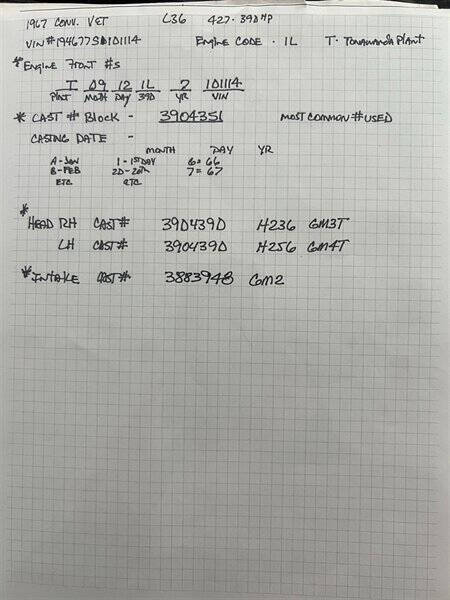 1967 CONV. VET L36 427-390HP
VIN#194677SD101114 ENGINE CODE - IL T- TONAWANDA PLANT
*ENGINE FRONT #S
T 09 12 IL 7 101114
PLNT MONTH DAY 390 YR VIN
* CAST # BLOCK - 3904351 MOST COMMON # USED
CASTING DATE -
MONTH DAY YR
A-JAN 1-1ST DAY 6=66
B-FEB 20-20th 7=67
ETC ETC.
*
HEAD RH CAST# 3904390 H236 GM3T
LH CAST# 3904390 H256 GM4T
*INTAKE CAST# 3883948 GM2